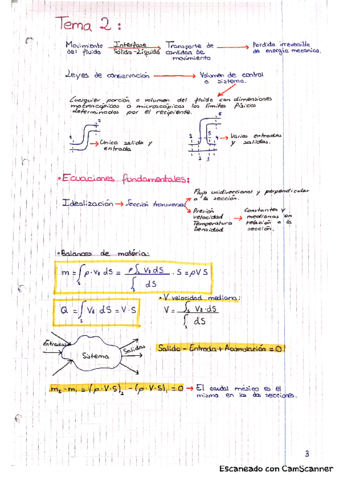 Tema 2:
Movimiento del fluido → Interfase Solido-Líquido → Transporte de cantidad de movimiento → Perdida irreversible de energía mecánica.
Leyes de conservación → Volumen de control o sistema.
Cualquier porción o volumen del fluido con dimensiones
macroscópicas o microscópicas los límites físicos
determinados por el recipiente.
→ Única salida y entrada
→ Varias entradas y salidas.
• Ecuaciones fundamentales:
Flujo unidireccional y perpendicular a la sección.
Idealización → Sección transversal
Presión
velocidad
Temperatura
Densidad
→ Constantes y medianas en relación a la sección.
• Balances de materia:
m = ∫s ρ·Vs dS = ρ ∫s Vs dS / ∫s dS · S = ρVS
* V velocidad mediana:
Q = ∫s Vs dS = V·S
V = ∫s Vs·dS / ∫s dS
Entradas
Sistema
Salidas
Salida - Entrada + Acumulación = 0
m₂ - m₁ = (ρ·V·S)₂ - (ρ·V·S)₁ = 0 → El caudal másico es el mismo en las dos secciones.
3
Escaneado con CamScanner